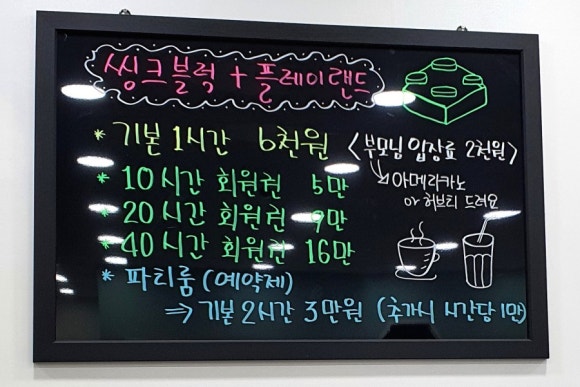 씽크블럭 + 플레이랜드
* 기본 1시간 6천원 <부모님 입장료 2천원>
↳ 아메리카노
or 허브티 드려요
* 10시간 회원권 5만
* 20시간 회원권 9만
* 40시간 회원권 16만
* 파티룸 (예약제)
⇒ 기본 2시간 3만원 (추가시 시간당 1만)